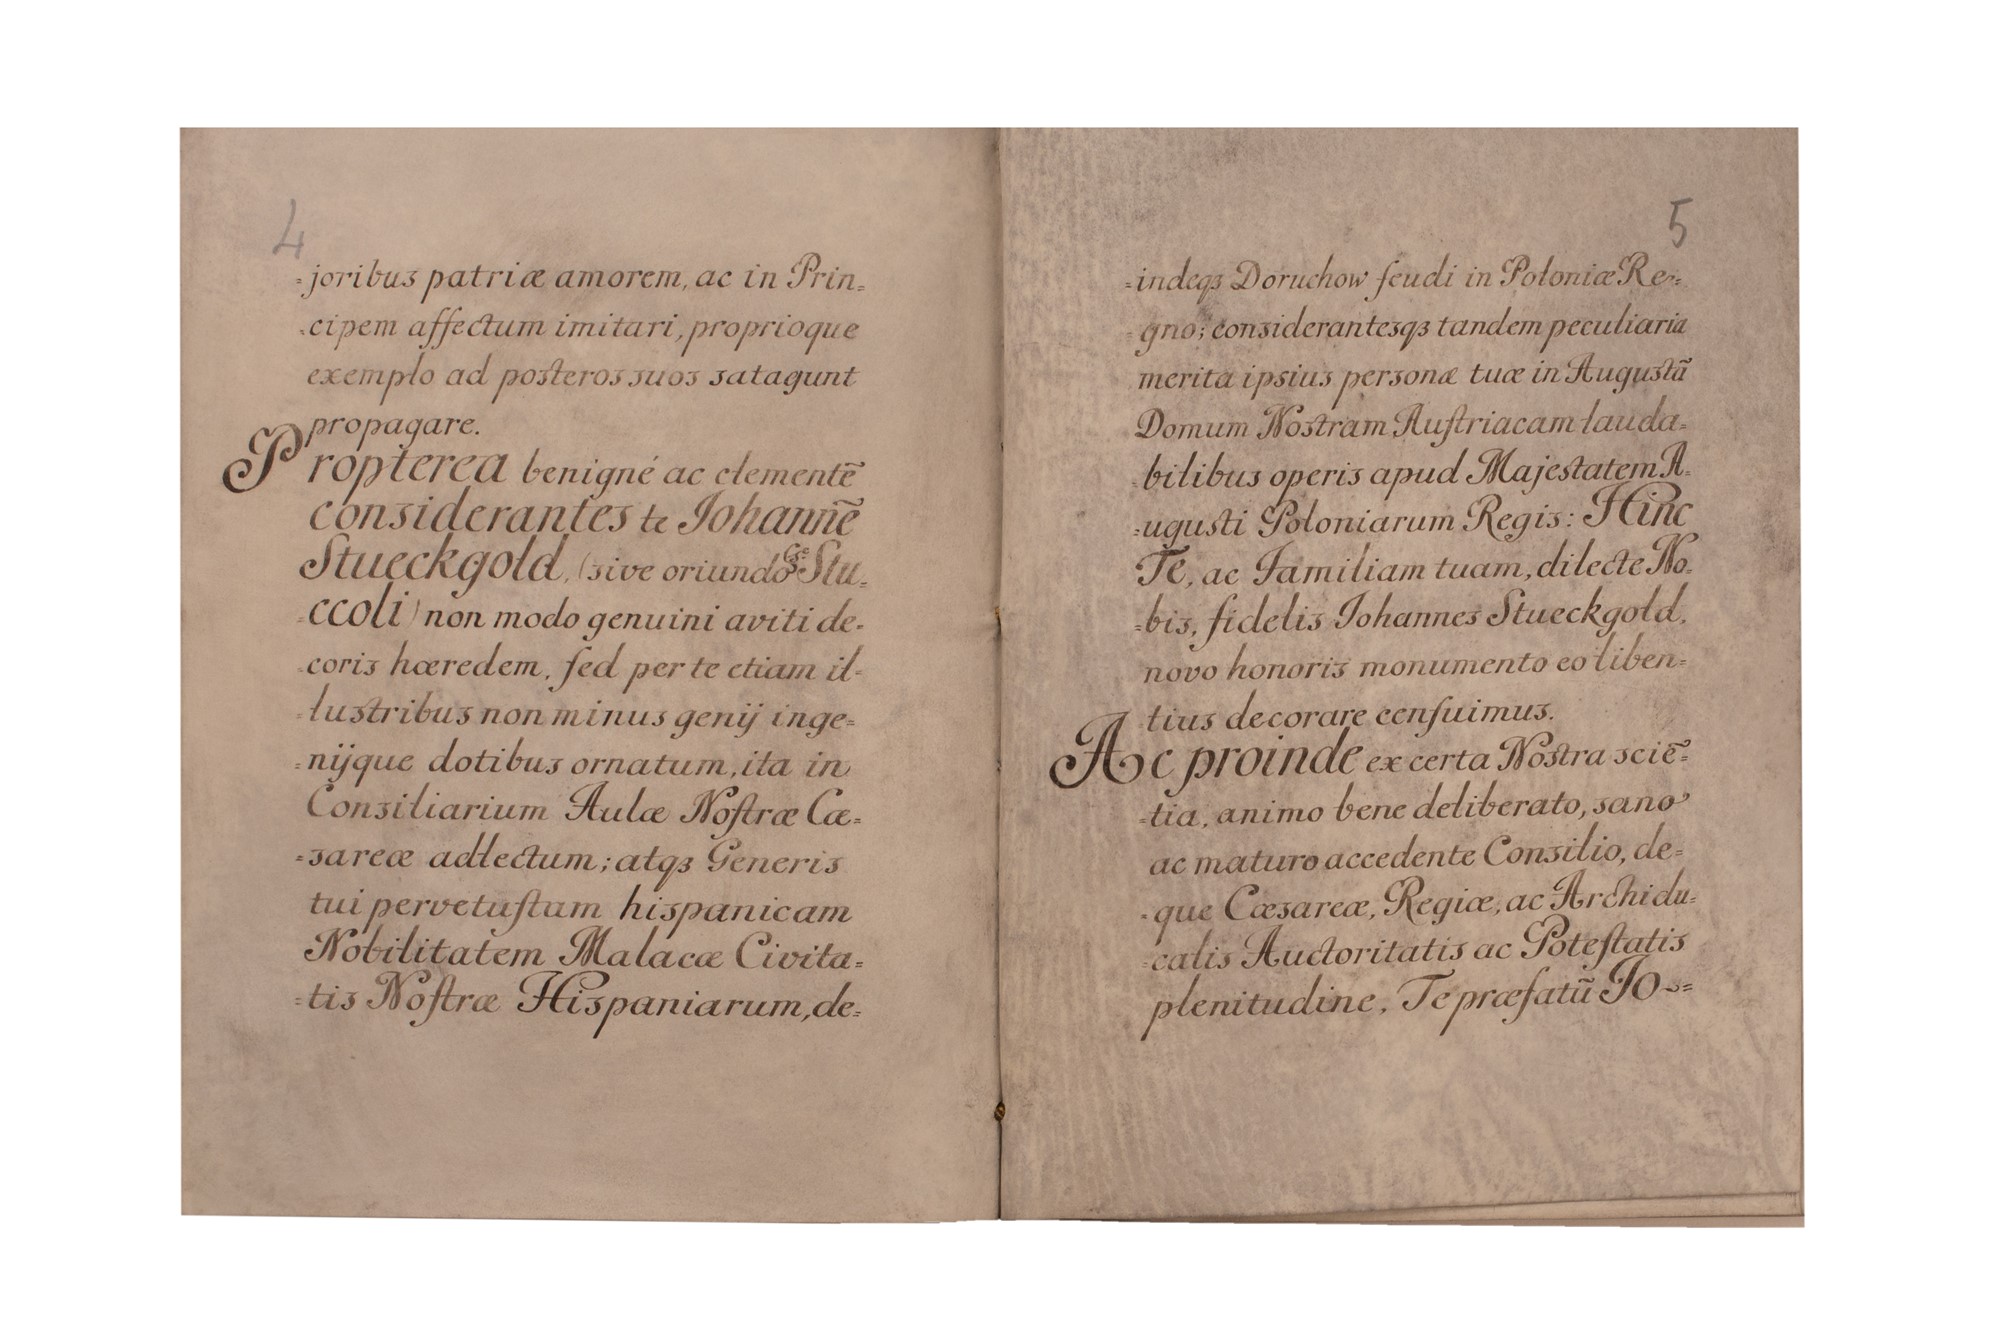 4
-joribus patriæ amorem, ac in Prin-
-cipem affectum imitari, proprioque
exemplo ad posteros suos satagunt
propagare.
Propterea benigné ac clementẽ
considerantes te Iohannẽ
Stueckgold, (sive oriundo Stu-
-ccoli) non modo genuini aviti de-
-coris hæredem, sed per te etiam il-
-lustribus non minus genij inge-
-nijque dotibus ornatum, ita in
Consiliarium Aulæ Nostræ Cæ-
-sareæ adlectum; atqȝ Generis
tui pervetustam hispanicam
Nobilitatem Malacæ Civita-
-tis Nostræ Hispaniarum, de-
5
-indeqȝ Doruchow feudi in Poloniæ Re-
-gno; considerantesqȝ tandem peculiaria
merita ipsius personæ tuæ in Augustã
Domum Nostram Austriacam lauda-
-bilibus operis apud Majestatem A-
-ugusti Poloniarum Regis: Hinc
Te, ac Familiam tuam, dilecte No-
-bis, fidelis Iohannes Stueckgold,
novo honoris monumento eo liben-
tius decorare censuimus.
Ac proinde ex certa Nostra sciẽ-
-tia, animo bene deliberato, sano
ac maturo accedente Consilio, de-
-que Cæsareæ, Regiæ, ac Archidu-
-calis Auctoritatis ac Potestatis
plenitudine, Te præfatũ Io-